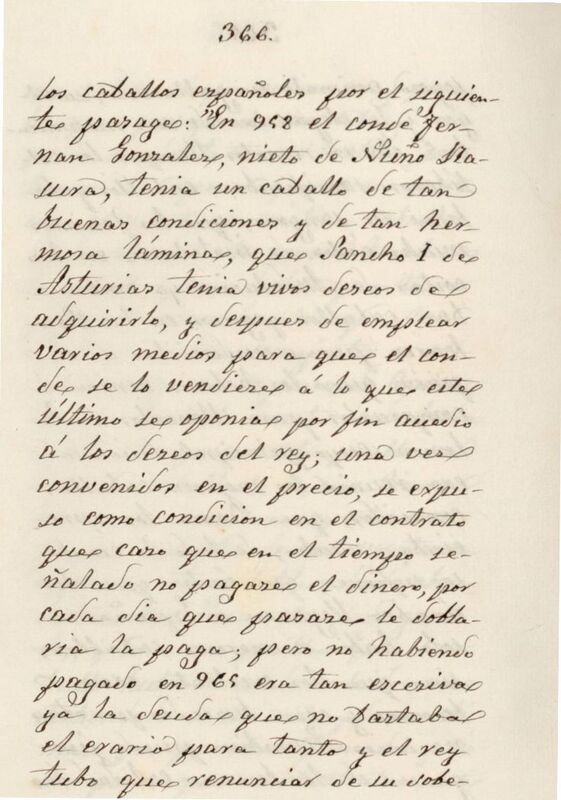 366.
los caballos españoles por el siguien-
te parage: "En 958 el conde Fer-
nan Gonzalez, nieto de Nuño Ra-
sura, tenia un caballo de tan
buenas condiciones y de tan her-
mosa lámina, que Sancho I de
Asturias tenia vivos deseos de
adquirirlo, y despues de emplear
varios medios para que el con-
de se lo vendiere á lo que este
último se oponia por fin acedio
á los deseos del rey; una vez
convenidos en el precio, se expu-
so como condicion en el contrato
que caso que en el tiempo se-
ñalado no pagare el dinero, por
cada dia que pasare le dobla-
ria la paga; pero no habiendo
pagado en 965 era tan escesiva
ya la deuda que no bastaba
el erario para tanto y el rey
tubo que renunciar de su sobe-